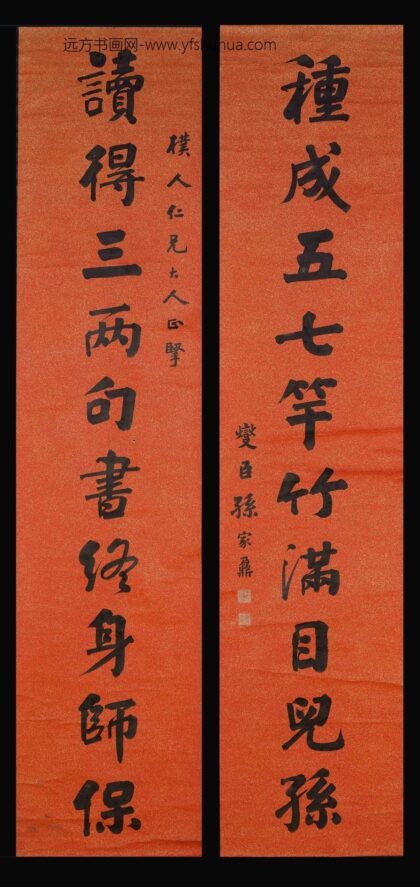 远方书画网-www.yfshuhua.com
種成五七竿竹滿目兒孫
燮臣孫家鼐
樸人仁兄大人正掔
讀得三两句書終身師保